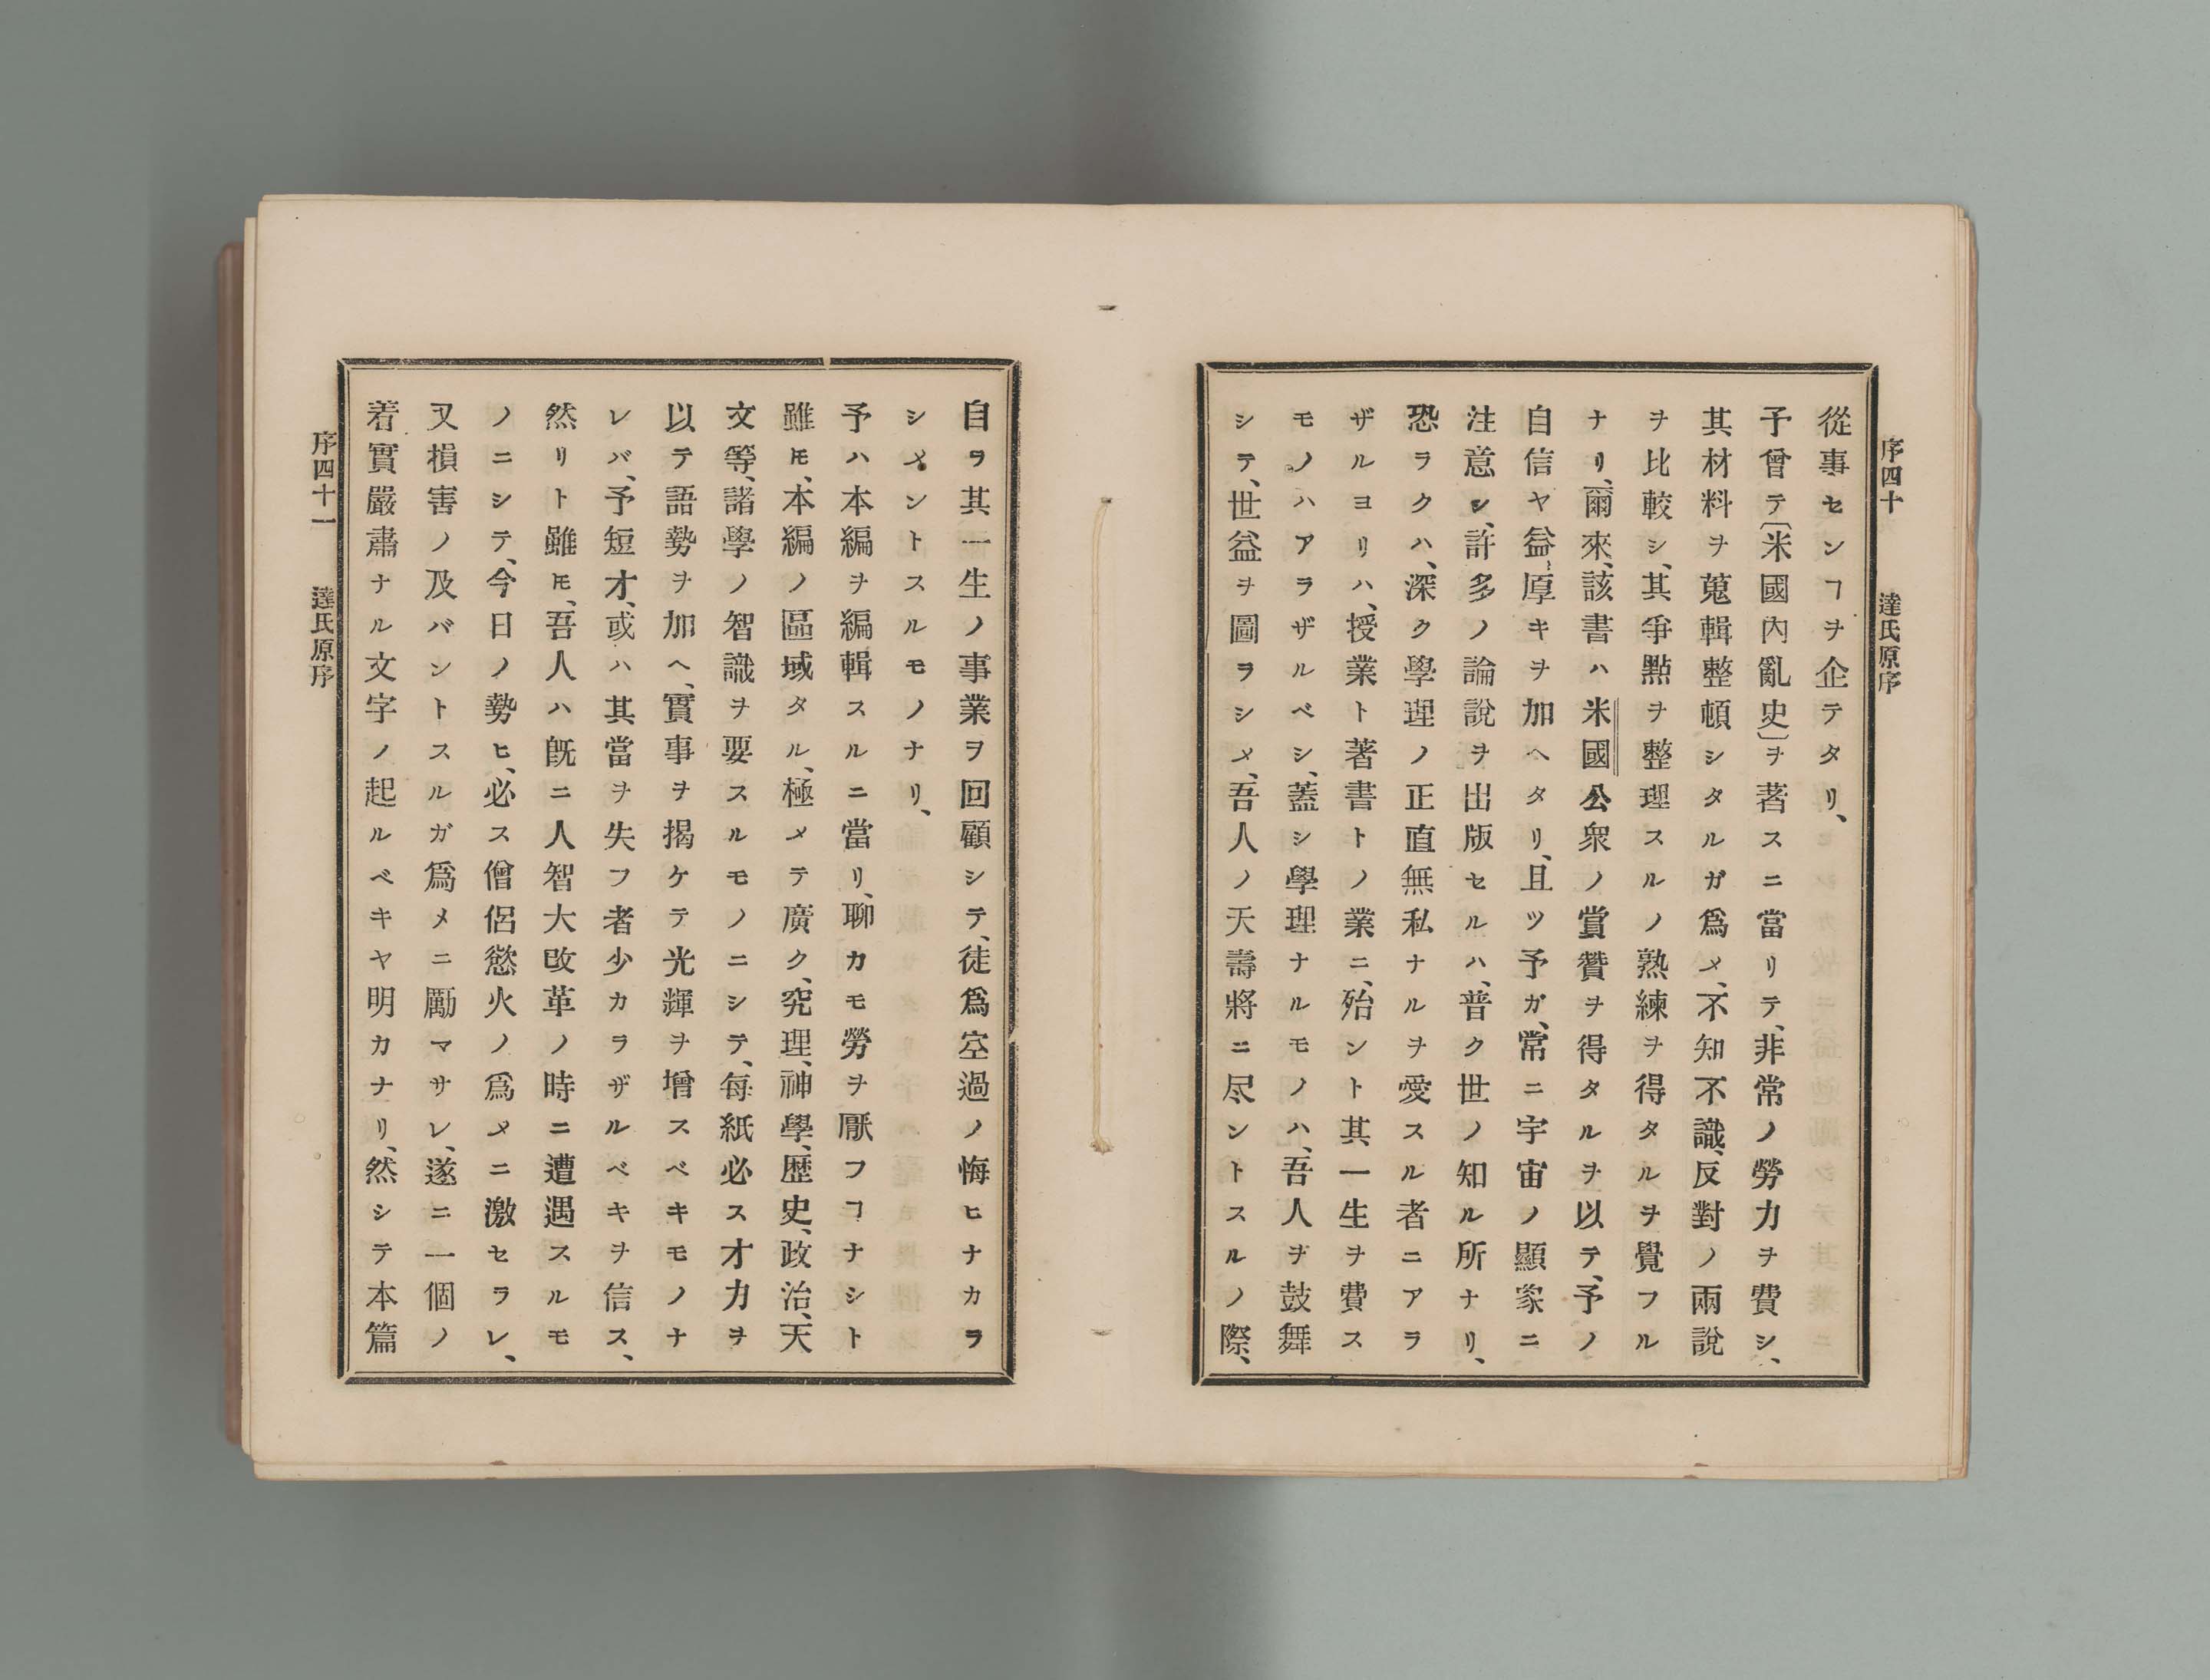 序四十　　達氏原序
從事センヿヲ企テタリ、
予曾テ〔米國內亂史〕ヲ著スニ當リテ、非常ノ勞力ヲ費シ、
其材料ヲ蒐輯整頓シタルガ爲メ、不知不識、反對ノ兩說
ヲ比較シ、其爭點ヲ整理スルノ熟練ヲ得タルヲ覺フル
ナリ、爾來、該書ハ米國公衆ノ賞贊ヲ得タルヲ以テ、予ノ
自信ヤ益、厚キヲ加ヘタリ、且ツ予ガ、常ニ宇宙ノ顯象ニ
注意シ、許多ノ論說ヲ出版セルハ、普ク世ノ知ル所ナリ、
恐ラクハ、深ク學理ノ正直無私ナルヲ愛スル者ニアラ
ザルヨリハ、授業ト著書トノ業ニ、殆ント其一生ヲ費ス
モノハアラザルベシ、蓋シ學理ナルモノハ、吾人ヲ鼓舞
シテ、世益ヲ圖ラシメ、吾人ノ天壽將ニ尽ントスルノ際、
自ラ其一生ノ事業ヲ回顧シテ、徒爲空過ノ悔ヒナカラ
シメントスルモノナリ、
予ハ本編ヲ編輯スルニ當リ、聊カモ勞ヲ厭フヿナシト
雖𪜈、本編ノ區域タル、極メテ廣ク、究理、神學、歷史、政治、天
文等、諸學ノ智識ヲ要スルモノニシテ、每紙必ス才力ヲ
以テ語勢ヲ加ヘ、實事ヲ揭ケテ光輝ヲ增スベキモノナ
レバ、予短才、或ハ其當ヲ失フ者少カラザルベキヲ信ス、
然リト雖𪜈、吾人ハ旣ニ人智大改革ノ時ニ遭遇スルモ
ノニシテ、今日ノ勢ヒ、必ス僧侶慾火ノ爲メニ激セラレ、
又損害ノ及バントスルガ爲メニ勵マサレ、遂ニ一個ノ
着實嚴肅ナル文字ノ起ルベキヤ明カナリ、然シテ本篇
序四十一　　達氏原序